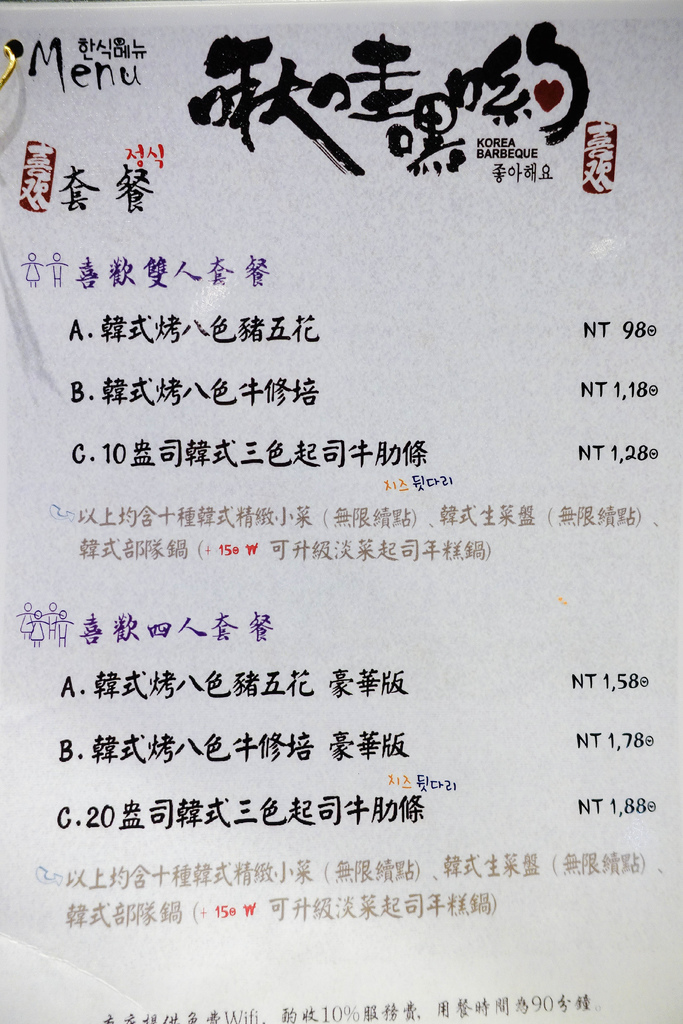 한식메뉴
Menu
啾哇嘿喲
KOREA
BARBEQUE
좋아해요
喜欢
喜欢
정식
套餐
喜歡雙人套餐
A.韓式烤八色豬五花 NT 980
B.韓式烤八色牛修培 NT 1,180
C.10盎司韓式三色起司牛肋條 NT 1,280
치즈 뒷다리
以上均含十種韓式精緻小菜(無限續點)、韓式生菜盤(無限續點)、
韓式部隊鍋(+150₩ 可升級淡菜起司年糕鍋)
喜歡四人套餐
A.韓式烤八色豬五花 豪華版 NT 1,580
B.韓式烤八色牛修培 豪華版 NT 1,780
치즈 뒷다리
C.20盎司韓式三色起司牛肋條 NT 1,880
以上均含十種韓式精緻小菜(無限續點)、韓式生菜盤(無限續點)、
韓式部隊鍋(+150₩ 可升級淡菜起司年糕鍋)
提供免費Wifi, 酌收10%服務費, 用餐時間為90分鐘。